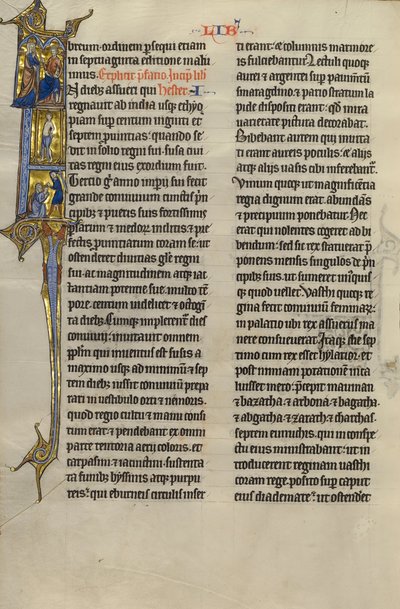 LIB'
breum. ordinem p̄sequi etiam
in septuaginta editione malu
imus. Explicit p̄fatio. Incip̄ lib̄
Hester. I
n dieb; assueri qui
regnauit ab india usq; ethyo
piam sup̄ centum uiginti et
septem p̄uintias: quando se
dit in solio regni sui. susa ciui
tas regni eius exordium fuit.
Tertio gͦ anno imp̄ii sui fecit
grande conuiuium cunctis p̄n
cipib; et pueris suis fortissimis
p̄sarum et medorum inclitis et p̄
fectis p̄uintiarum coram se. ut
ostenderet diuitias glīe regni
sui. ac magnitudinem atq; iac
tantiam potentie sue. multo tēm
pore. centum uidelicet et octogin
ta dieb;. Cumq; implerentur dies
conuiuii. inuitauit omnem
pp̄lm qui inuentus est susis a
maximo usq; ad minimum. et sep
tem dieb; iussit conuiuium prepa
rari in uestibulo orti et nemoris.
quod regio cultu et manu consi
tum erat. et pendebant ex omni
parte tentoria aerii coloris. et
carpasini. et iacinctini. sustenta
ta funib; byssinis atq; purpu
reis. qui eburneis circulis inser
ti erant. et columnis marmore
is fulciebantur. Lectuli quoq;
aurei et argentei sup̄ pauimtum
smaragdino et pario stratum la
pide dispositi erant. qd̄ mira
uarietate pictura decorabat.
Bibebant autem qui inuita
ti erant aureis poculis. et aliis
atq; aliis uasis cibi inferebant.
Uinum quoq; ut magnificentia
regia dignum erat. abundans
et precipuum ponebatur. Nec
erat qui nolentes cogeret ad bi
bendum. sed sic rex statuerat p̄
ponens mensis singulos de p̄n
cipib; suis. ut sumeret unusquis
q; quod uellet. Uasthi quoq; re
gina fecit conuiuium feminarum
in palatio ubi rex assuerus ma
nere consueuerat. Itaq; die sep
timo cum rex esset hylarior. et
post nimiam potationem inca
luisset mero. p̄cepit maumam
et bazatha. et arbona. et bagatha.
et abgatha. et zarath. et charchas.
septem eunuchis. qui in conspe
ctu eius ministrabant. ut in
troducerent reginam uasthi
coram rege. posito sup̄ caput
eius diademate. ut ostenderet